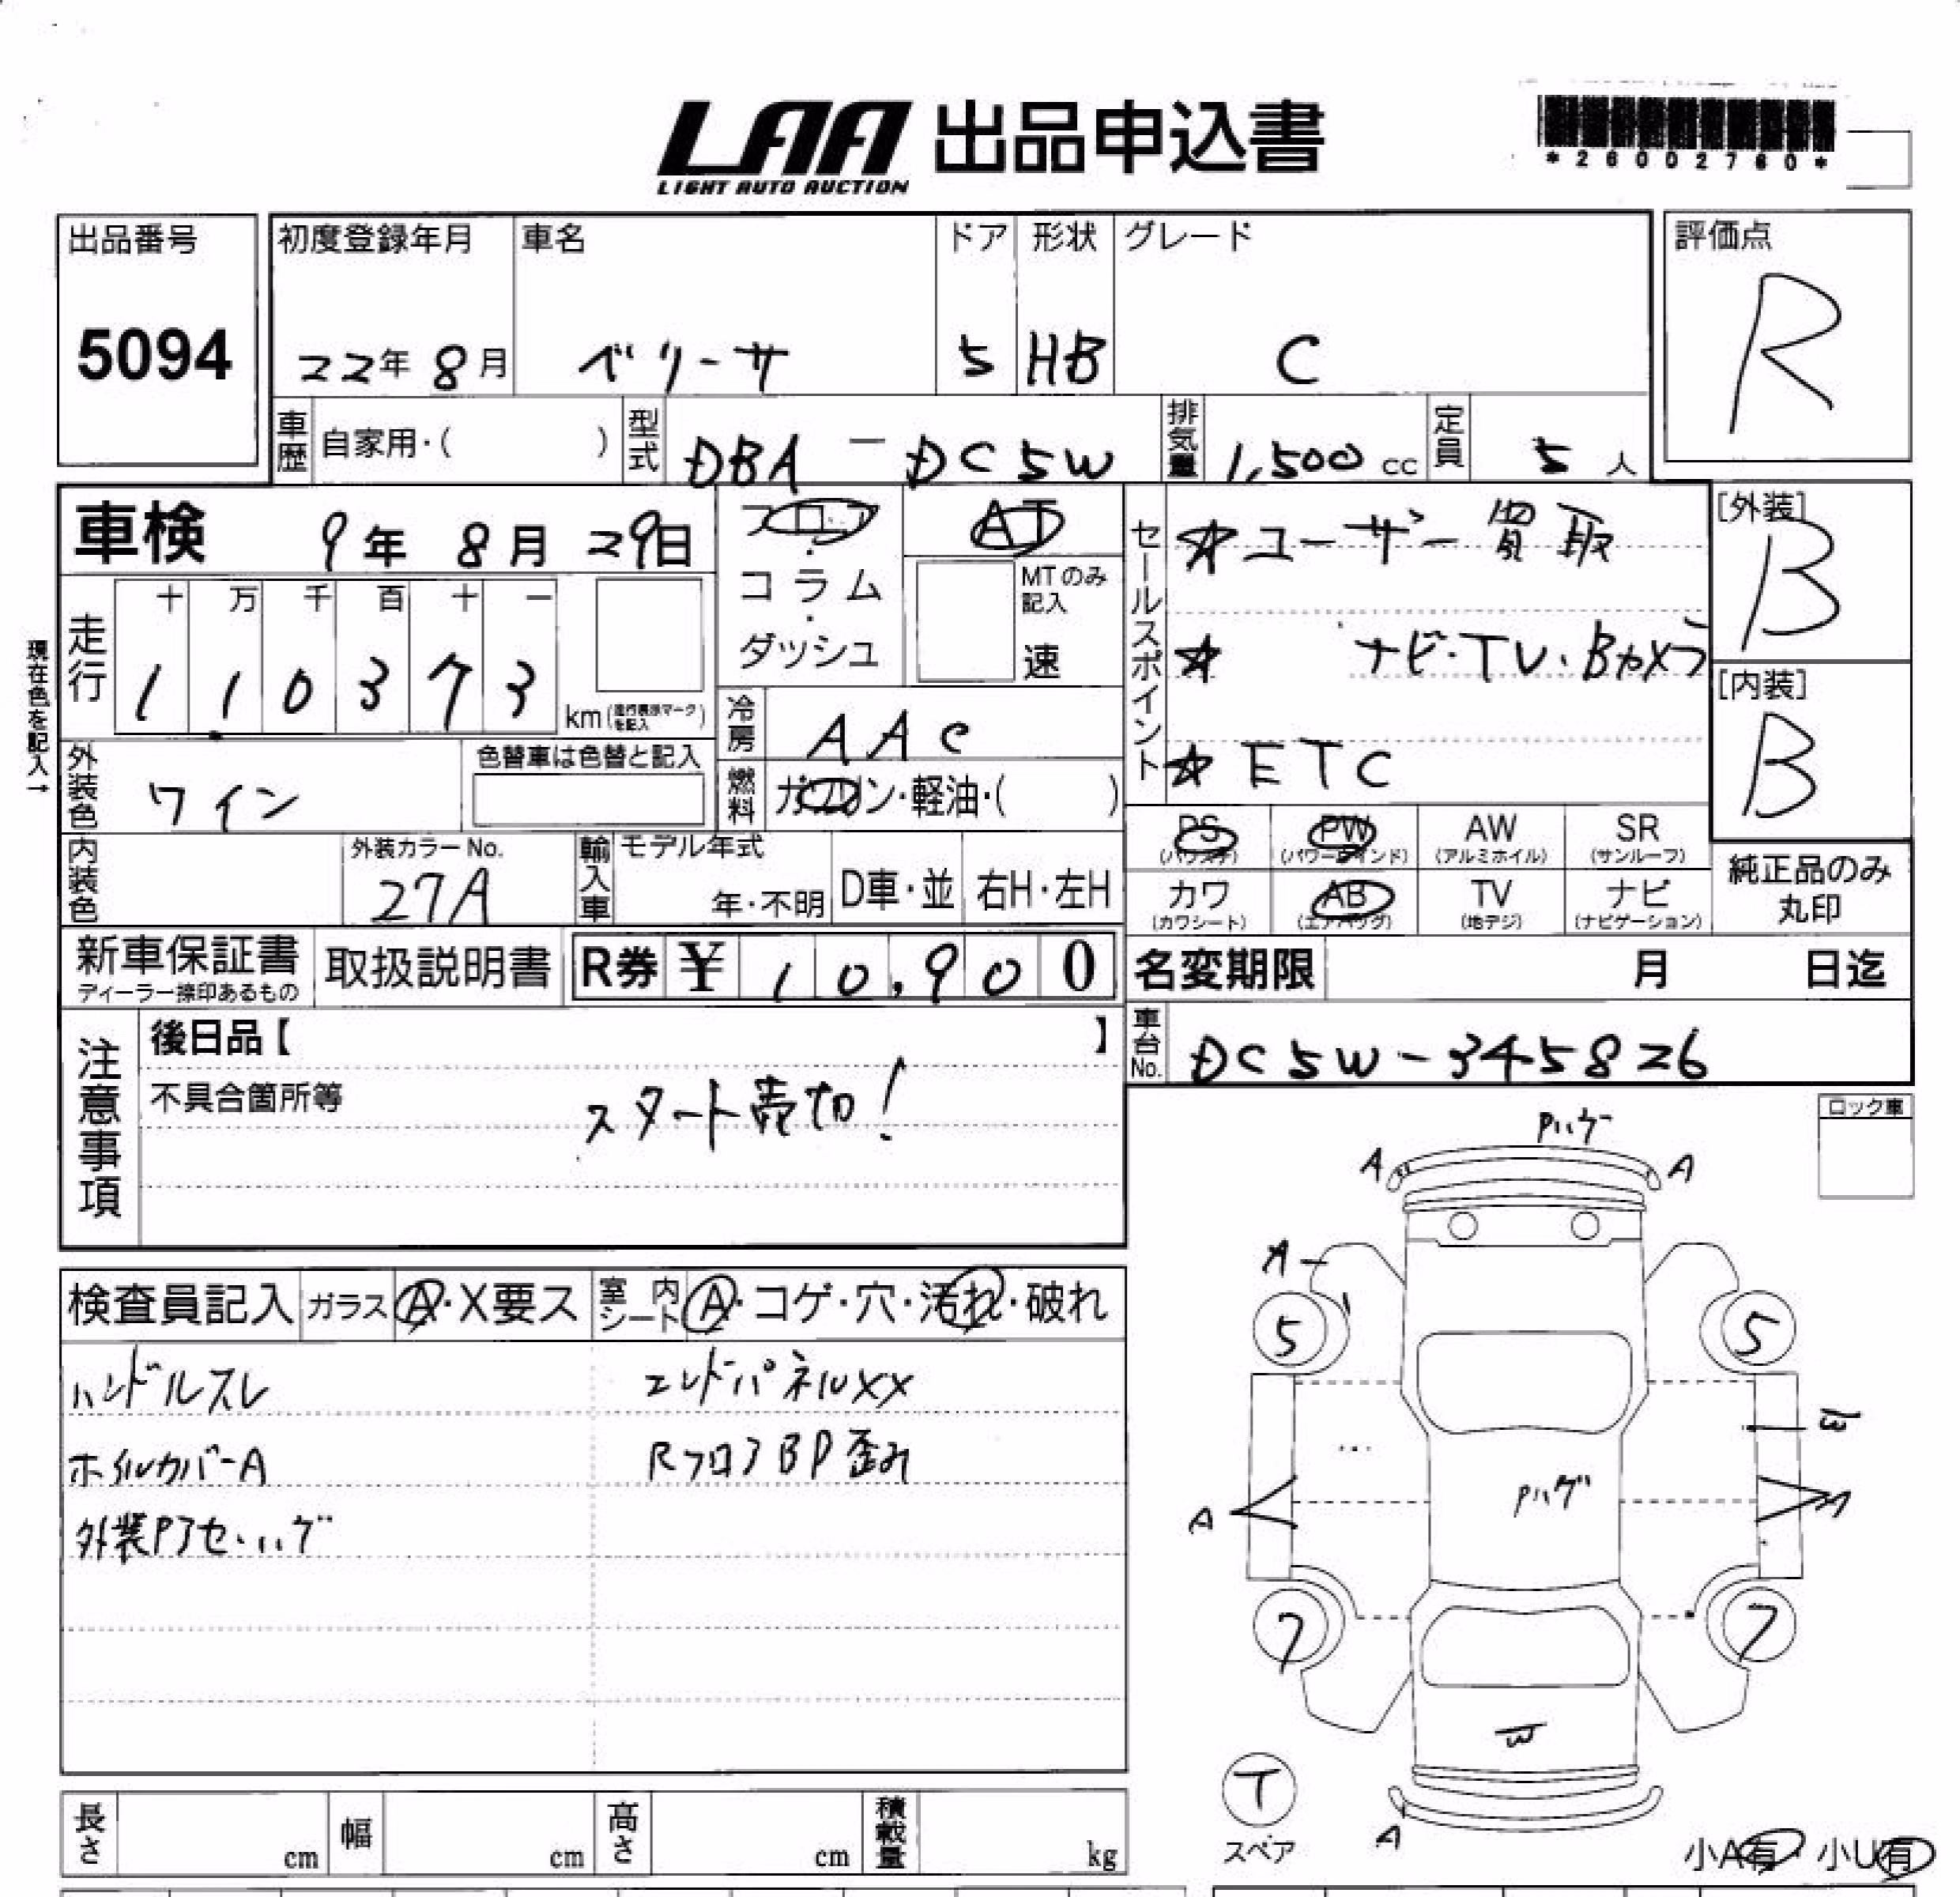 LAA 出品申込書
LIGHT AUTO AUCTION
*26002760*
出品番号
5094
初度登録年月
22年 8月
車名
ベリーサ
ドア
5
形状
HB
グレード
C
評価点
R
車歴 自家用・( )
型式 DBA-DC5W
排気量 1,500 cc
定員 5 人
車検 9年 8月 29日
フロア・コラム・ダッシュ
AT
MTのみ記入
速
セールスポイント
☆ユーザー買取
☆ ナビ・TV・Bカメラ
☆ETC
[外装]
B
[内装]
B
現在色を記入→
走行
十 万 千 百 十 一
1 1 0 3 7 3
km(走行表示マークを記入)
冷房 AAC
燃料 ガソリン・軽油・( )
外装色 ワイン
色替車は色替と記入
内装色
外装カラーNo.
27A
輸入車 モデル年式
年・不明
D車・並
右H・左H
PS (パワステ)
PW (パワーウインド)
AW (アルミホイル)
SR (サンルーフ)
カワ (カワシート)
AB (エアバッグ)
TV (地デジ)
ナビ (ナビゲーション)
純正品のみ
丸印
新車保証書
ディーラー捺印あるもの
取扱説明書
R券 ¥ 10,900
名変期限 月 日迄
注意事項
後日品【 】
不具合箇所等
スタート売切!
車台No. DC5W-345826
ロック車
検査員記入
ガラス A・X要ス
室内シート A・コゲ・穴・汚れ・破れ
ハンドルスレ
エンドパネルXX
ホイルカバーA
RフロアBP歪み
外装Pアセ・ハゲ
Pハゲ
A
A
A
5
5
W
Pハゲ
A
A
7
7
W
T
スペア
A
小A有・小U有
長さ cm
幅 cm
高さ cm
積載量 kg